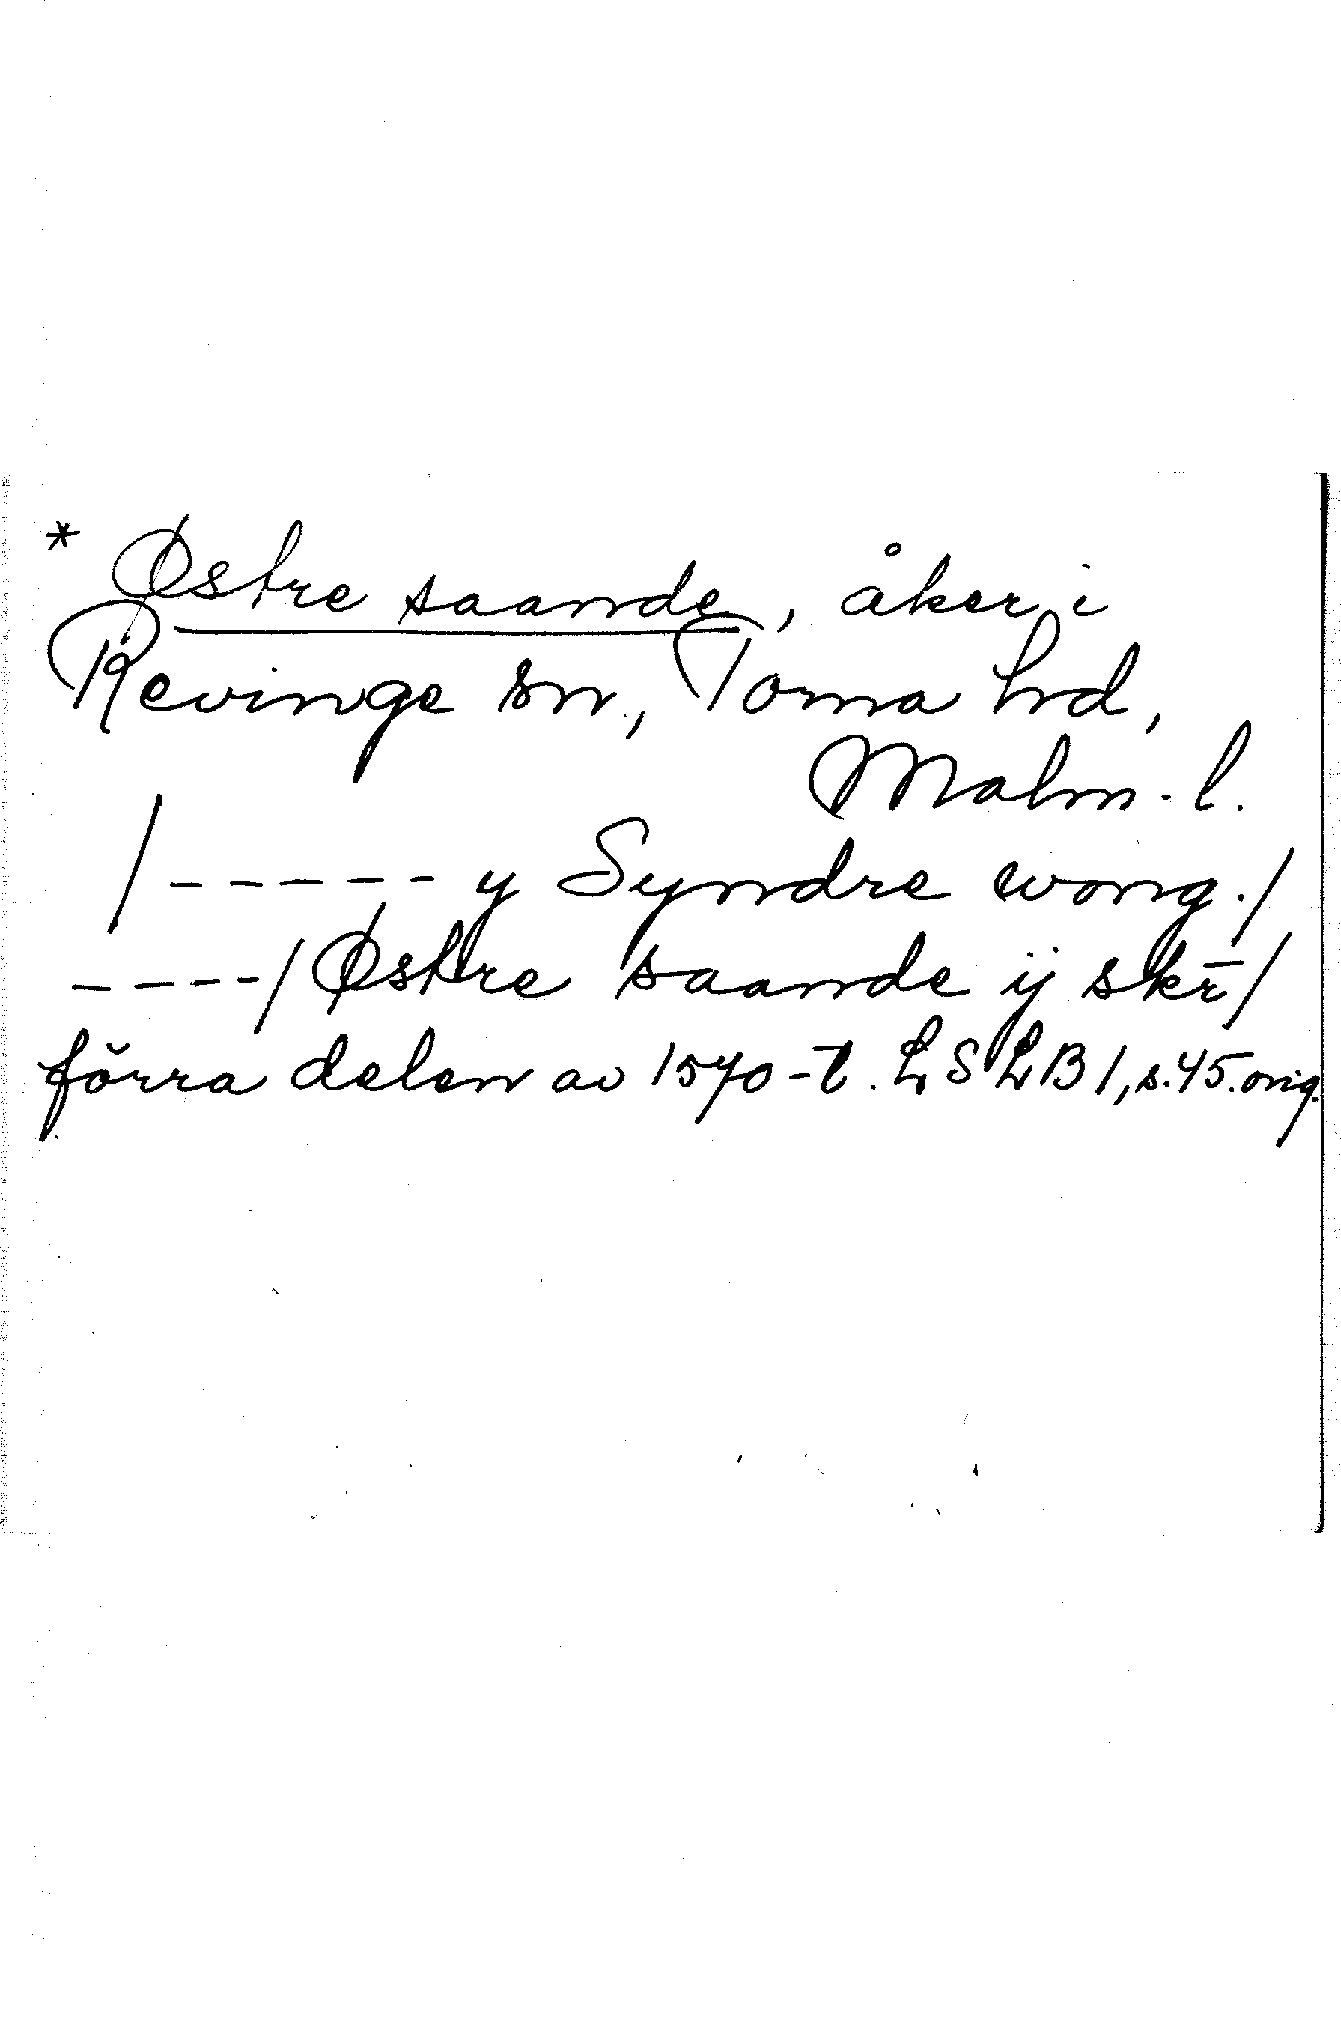 * Østre saande, åker i
Revinge sn, Torna hd,
Malm. l.
/ ----- y Syndre wong./
----/ Østre saande ij skr̄/
förra delen av 1570-t. LSLB 1, s. 45. orig.